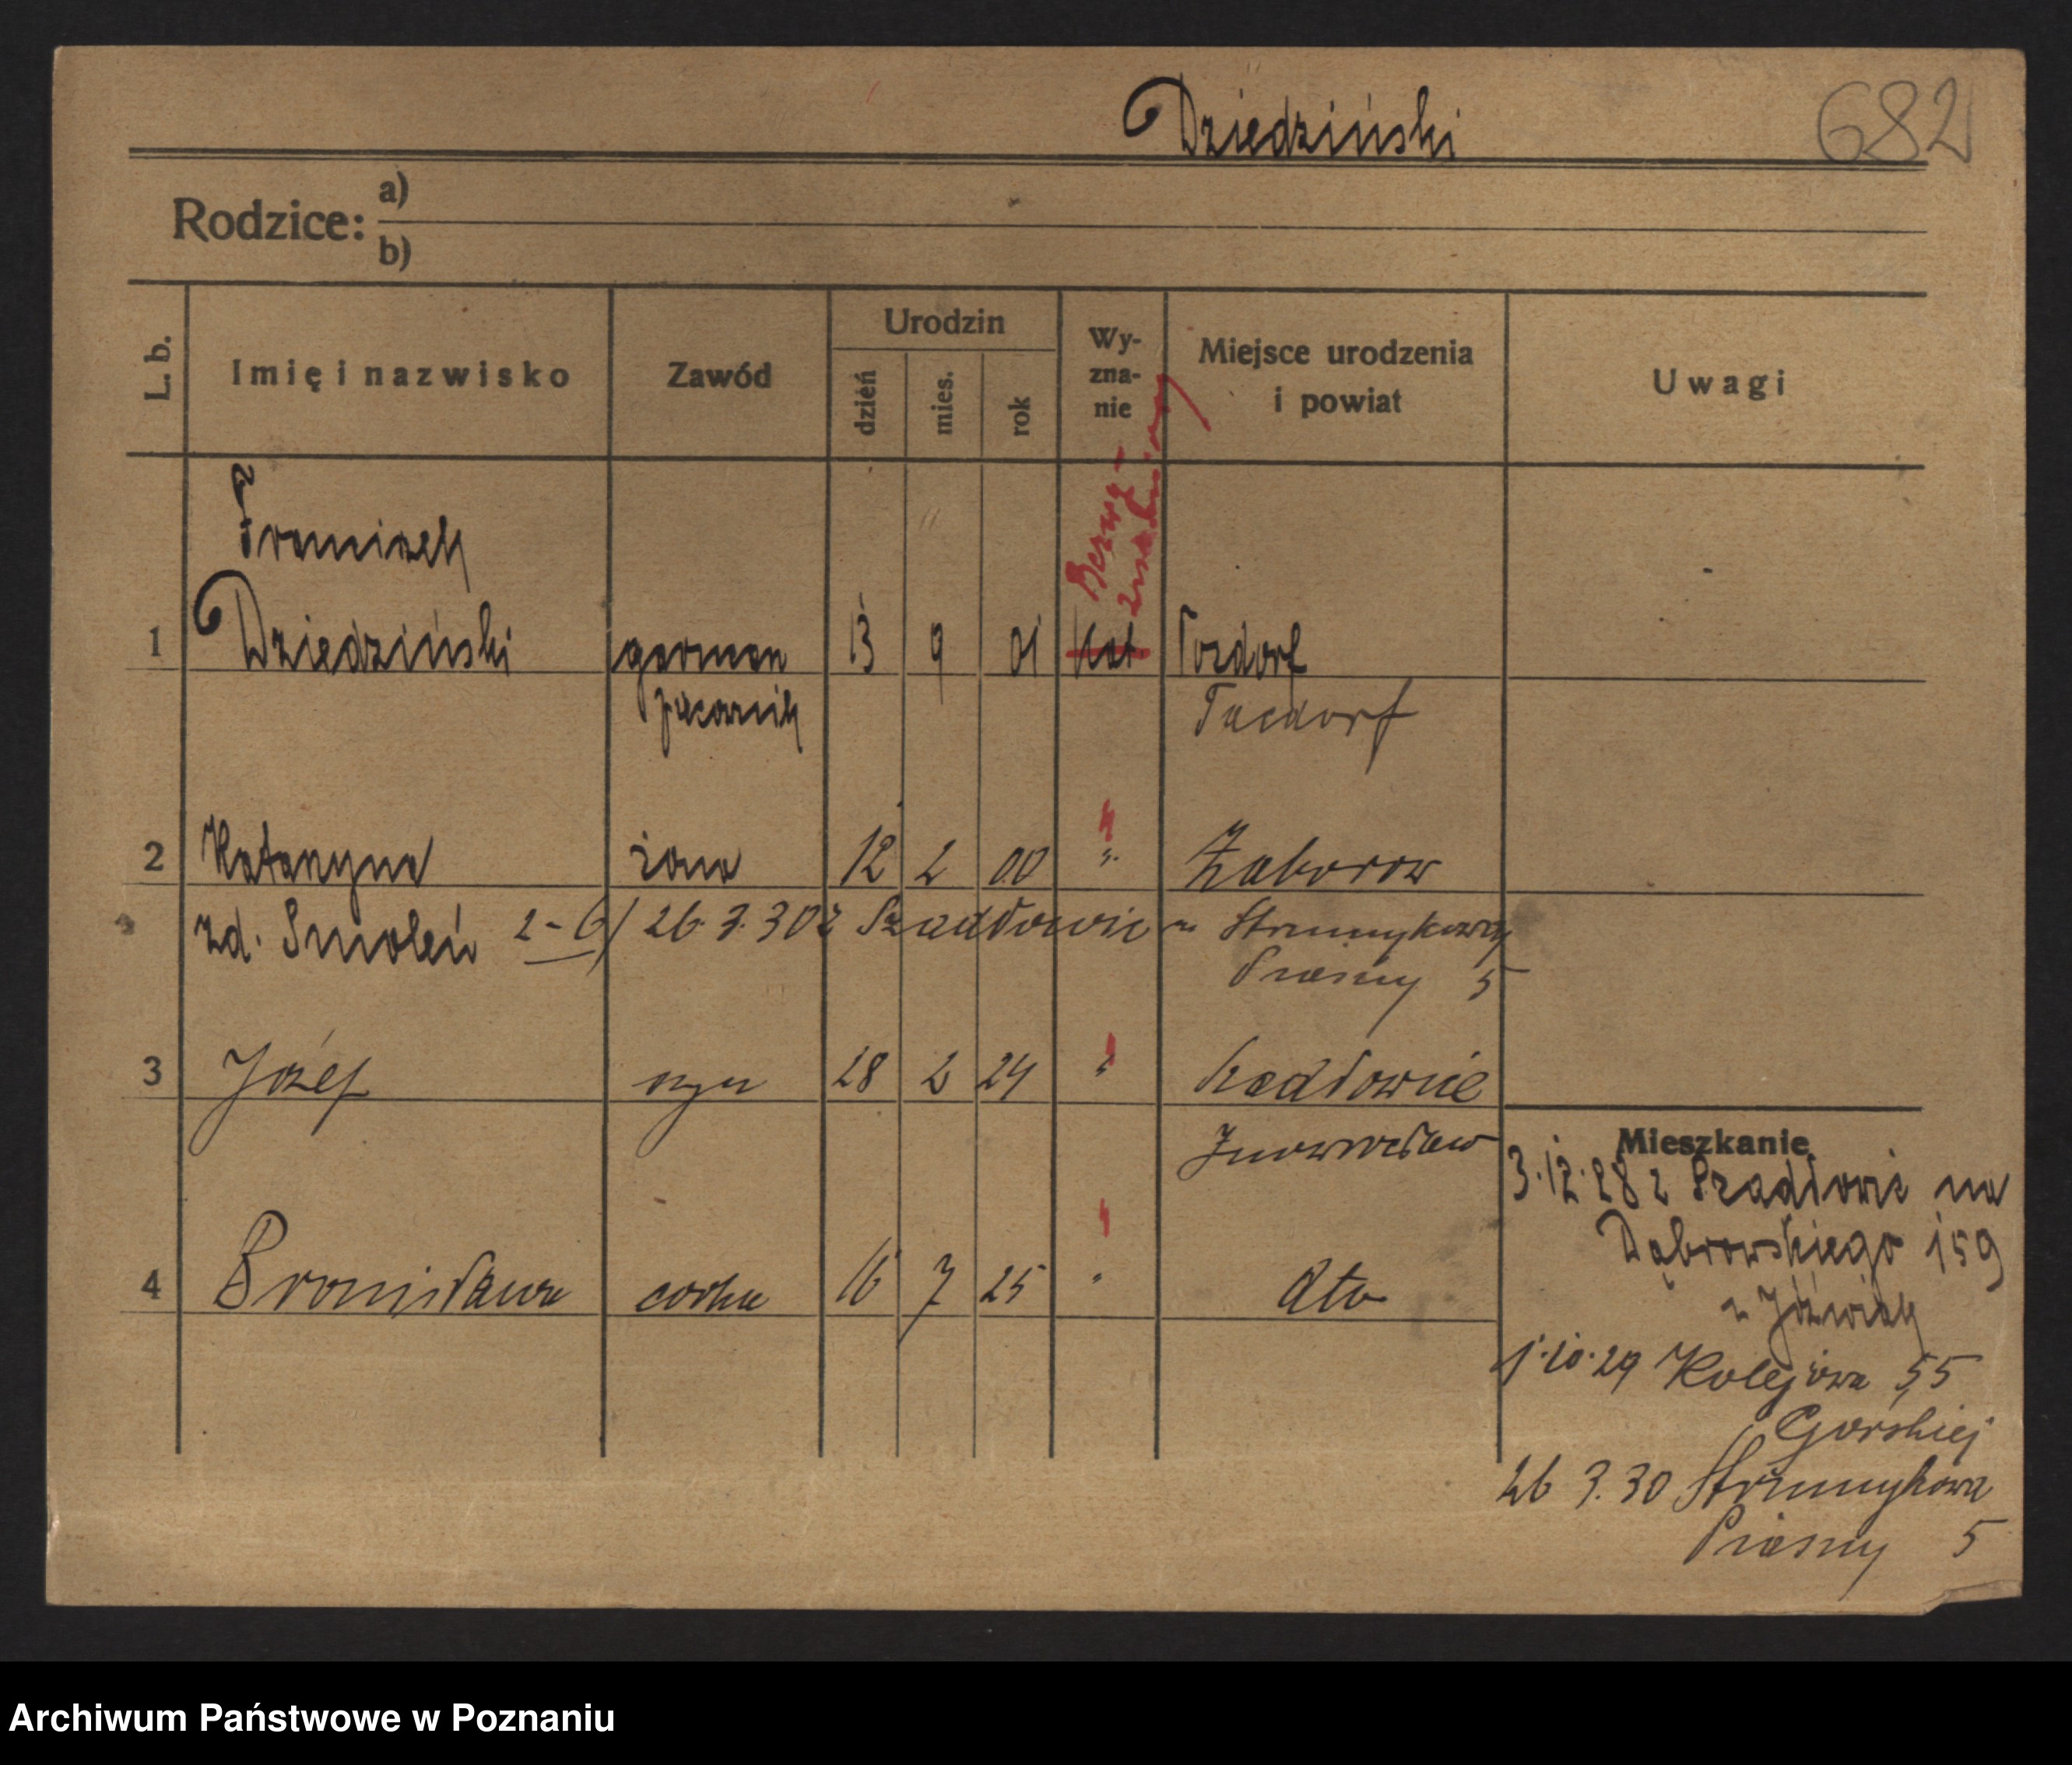 Dziedziński 682
Rodzice: a)
b)
L. b. Imię i nazwisko Zawód Urodzin dzień mies. rok Wy-zna-nie Miejsce urodzenia i powiat Uwagi
Franciszek
Bezwy-
znaniowy
1 Dziedziński 13 9 01 kat.
2 Katarzyna żona 12 2 00 " Zaborow
zd. Smoleń 2-6) 26.3.30 z Szadłowic Strumykowa
5
3 Józef syn 28 2 24 " Szadłowice
Inowrocław
4 Bronisława córka 16 7 25 " dto
Mieszkanie
3.12.28 z Szadłowic na
Dąbrowskiego 159
u Jóźwiak
1.10.29 Kolejowa 55
Gorskiej
26 3.30 Strumykowa
5
Archiwum Państwowe w Poznaniu